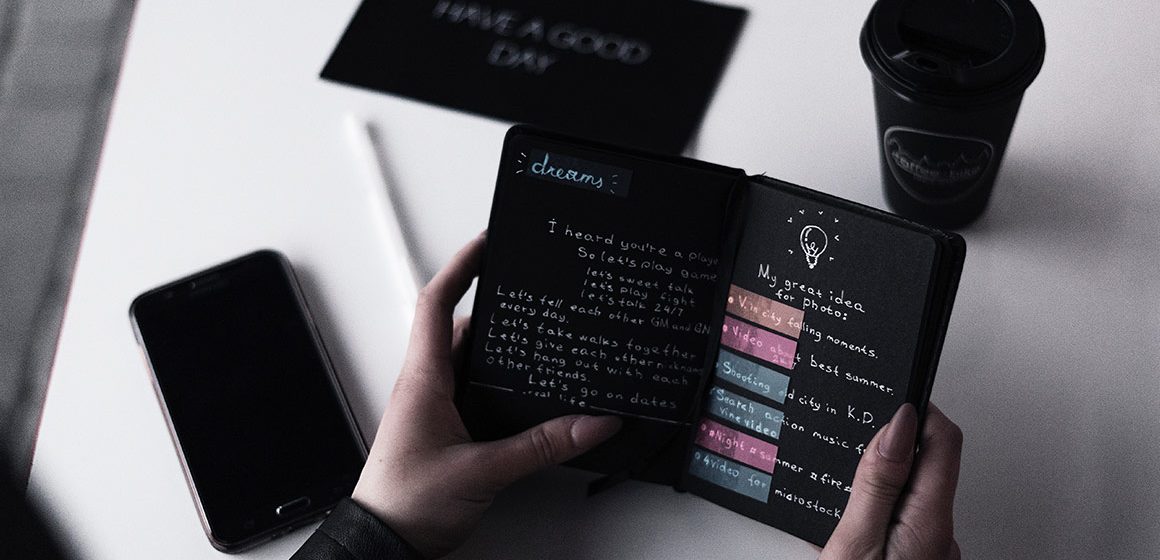 HAVE A GOOD
DAY
dreams
I heard you're a
So let's play
let's sweet talk
let's play fight
let's talk 24/7
Let's tell each other GM and GN
every day.
Let's take walks together
Let's give each other
Let's hang out with each
other friends.
Let's go on dates
real life
My great idea
for photo:
V.in city falling moments.
Video about best summer.
24/7
Shooting old city in K.D.
Search action music
vine video
#Night #summer #fire#
4video for microstock
coffee